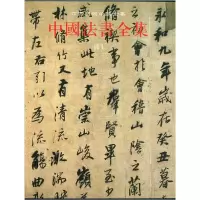 中國法書全集
永和九年歲在癸丑暮
會于會稽山陰之蘭
脩稧事也羣賢畢
咸集此地有崇山峻領
林脩竹又有清流激湍
帶左右引以為流觴曲